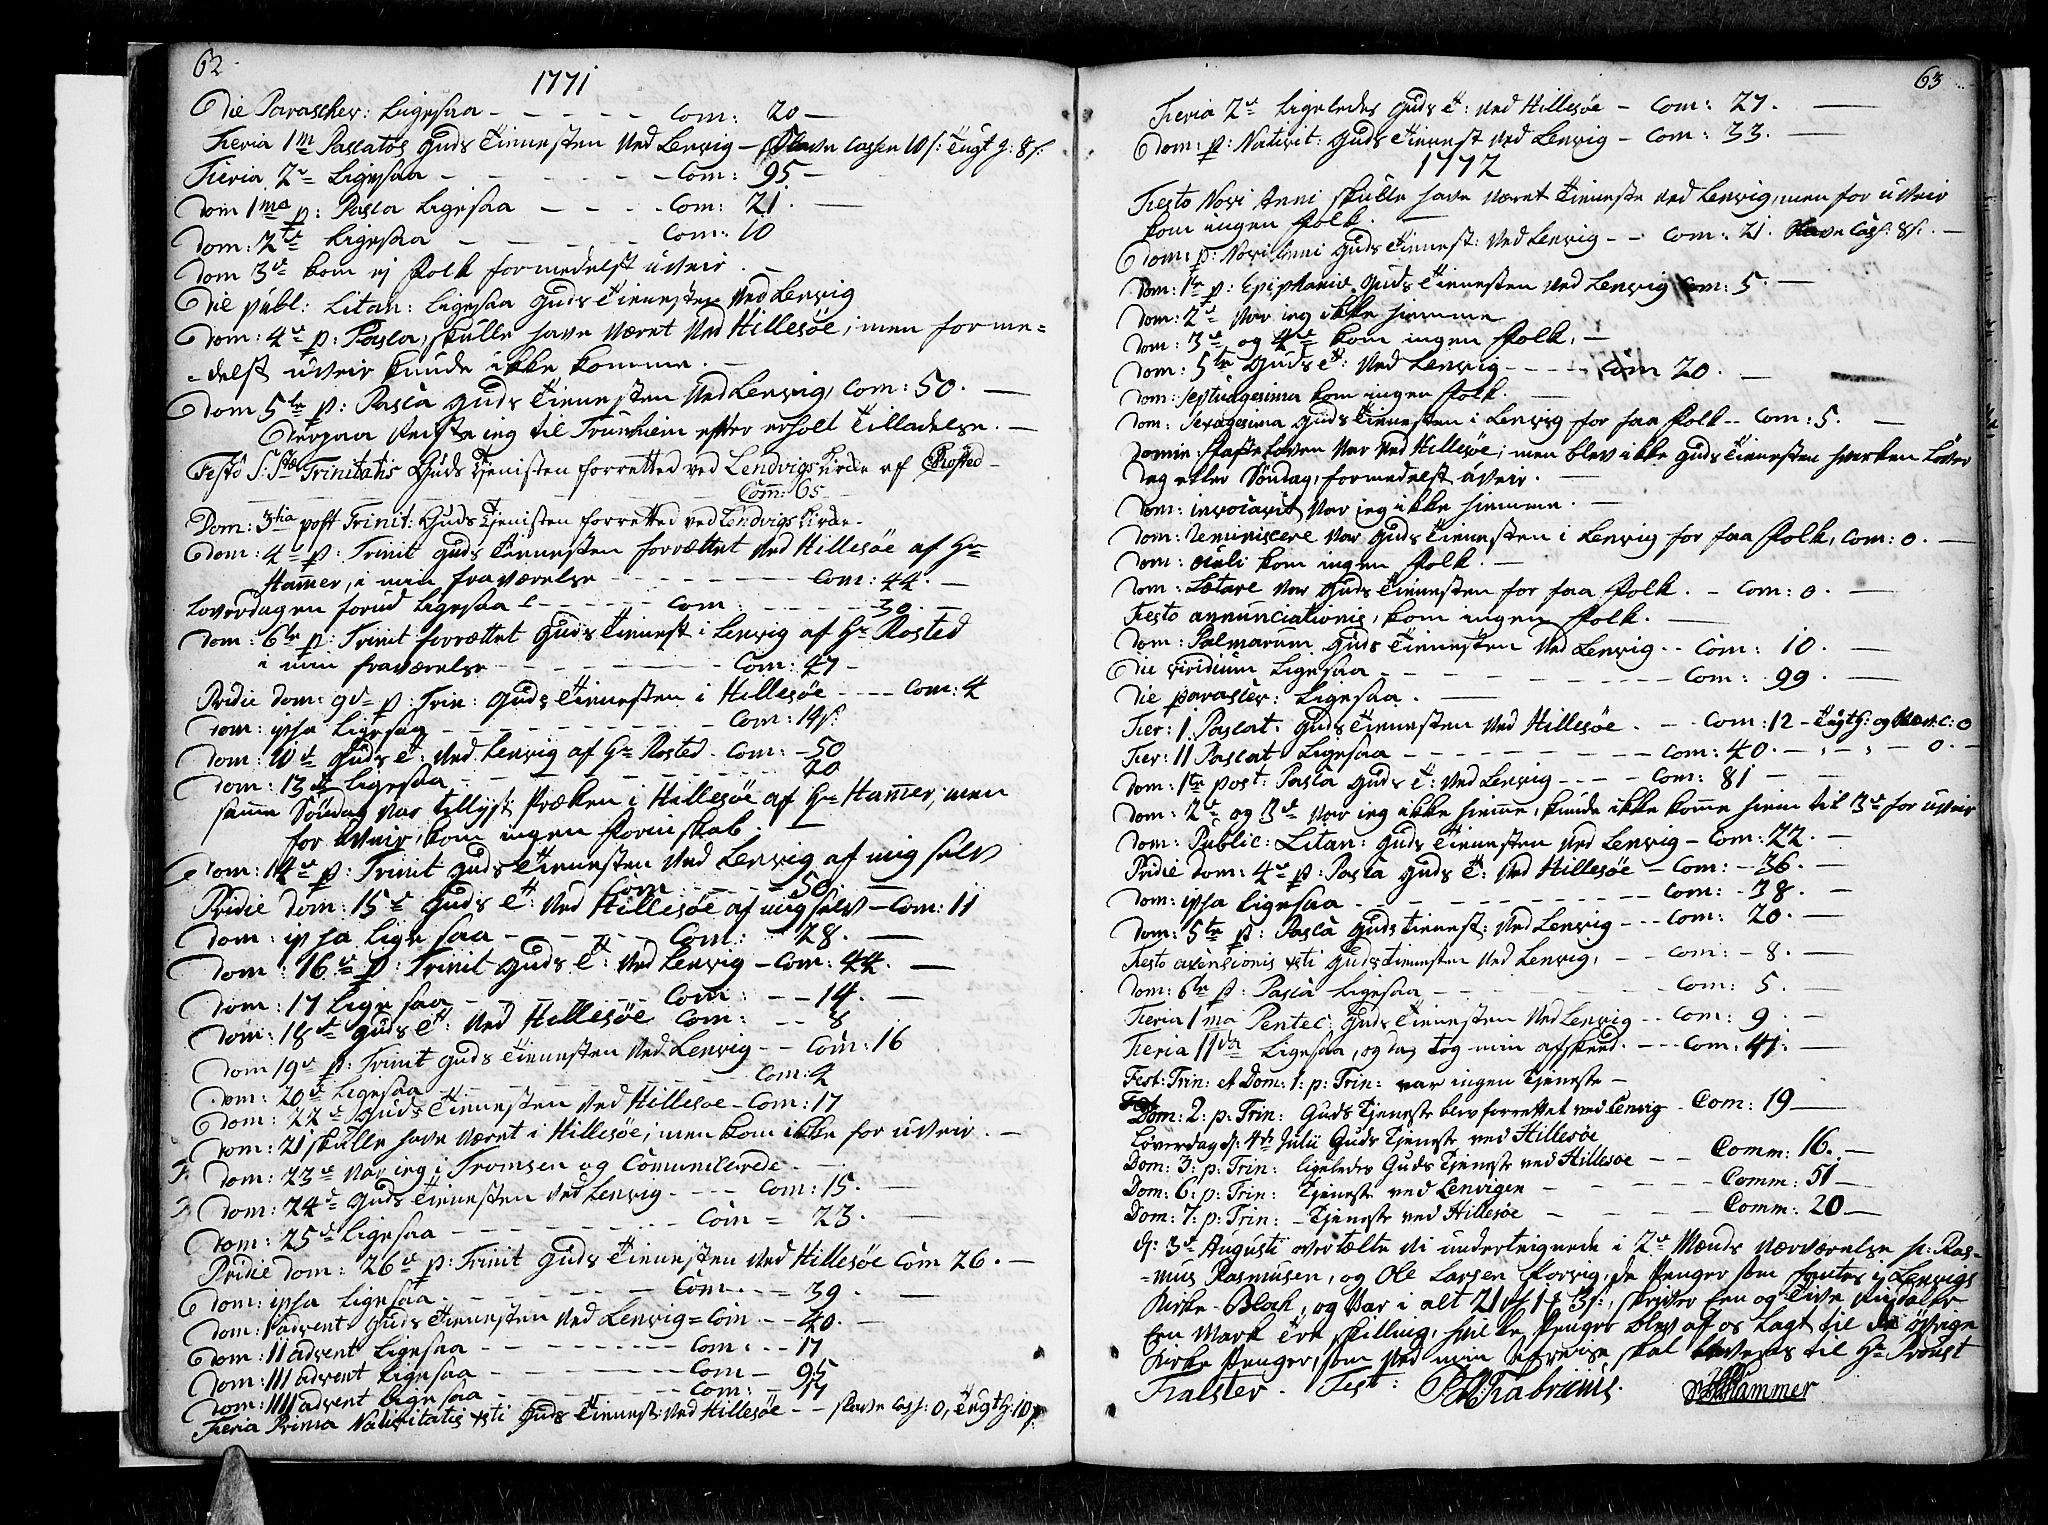 62
1771
Die Paraschev: Ligesaa - - - - - Com: 20 -
Feria 1m Pascatos Guds Tienesten ved Lenvig - Slave Cassen 10 s: Tugt H: 8 s:
Feria 2de Ligesaa - - - - - - Com: 95 -
Dom 1ma p: Pasca Ligesaa - - - Com: 21. -
Dom: 2de Ligesaa - - - - - Com: 10
Dom 3de kom ej Folk formedelst uveir. -
Die publ: Litan: Ligesaa Guds Tienesten ved Lenvig
Dom: 4de p: Pasca, skulle have været ved Hillesøe, men forme=
=delst uveir kunde ikke komme. -
Dom 5te p: Pasca Guds Tienesten ved Lenvig, Com: 50. -
Derpaa reiste ieg til Trunhiem efter erholt Tilladelse. -
Festo S:Stæ Trinitatis Guds Tjenisten forretted ved Lendvigs Kirke af Rosted -
Com: 65 -
Dom: 3tia post Trinit: Guds Tjenisten forretted ved Lendvigs Kirke -
Dom: 4de p: Trinit Guds Tienesten forrættet ved Hillesøe af Hr
Hamer, i min fraværelse - - - - - - Com: 44. -
Løverdagen forud Ligesaa - - - - Com: - - - - 30. -
Dom: 6te p: Trinit forrættet Guds Tienest i Lenvig af Hr Rosted
i min fraværelse - - - - - - Com: 47 -
Pridie Dom: 9de p: Trin: Guds Tienesten i Hillesøe - - - Com: 4
Dom: ipsa Ligesaa - - - - - - - Com: 14
Dom: 10de Guds T: ved Lenvig af Hr Rosted - Com: - 50
Dom: 13de Ligesaa - - - - - - - - 20
samme Søndag var tillyst Præken i Hillesøe af Hr Hamer, men
for uveir, kom ingen
Dom: 14de p: Trinit Guds Tienesten ved Lenvig af mig selv
Com - - - - 50. -
Pridie Dom: 15de Guds T: ved Hillesøe af mig selv - Com: 11
Dom: ipsa Ligesaa - - - - - Com: - 28. -
Dom: 16de p: Trinit Guds T: ved Lenvig - Com: 44. -
Dom: 17 Ligesaa - - - - - - Com: - - 14. -
Dom: 18de Guds T: ved Hillesøe Com: - - 8
Dom 19de p: Trinit Guds Tienesten ved Lenvig - - Com: 16
Dom: 20de Ligesaa - - - - - - - - Com: 2
Dom: 22de Guds Tienesten ved Hillesøe - Com: 17
Dom: 21 skulle have været i Hillesøe, men kom ikke for uveir. -
Dom: 23de var ieg i Tromsen og Comunicerede. -
Dom: 24de Guds Tienesten ved Lenvig. - - - Com: 15. -
Dom: 25de Ligesaa - - - - - - - Com = 23. -
Pridie Dom: 26de p: Trinit Guds Tienesten ved Hillesøe Com 26. -
Dom: ipsa Ligesaa. - - - - - - - Com. - - 39. -
Dom: 1 advent Guds Tienesten ved Lenvig = Com - - 40. -
Dom: 11 advent Ligesaa - - - - - - Com: . - 17
Dom: 111 advent Ligesaa - - - - - - Com - 95
Dom: 1111 advent Ligesaa - - - - - - Com: - 17
Feria Prima Nativitatis xsti Guds Tienest: ved Hillesøe - - Slave Cass: 0, Tugt H: 10 s
63
Feria 2de Ligeledes Guds T: ved Hillesøe - Com: 27. -
Dom: p: Nativit: Guds Tienest ved Lenvig - Com: 33. -
1772
Festo Novi Anni skulle have været Tieneste ved Lenvig, men for uveir
kom ingen Folk. -
Dom: p: Novi Anni Guds Tienest: ved Lenvig - - Com: 21. Slave Cass: 8 s. -
Dom: 1te p: Epiphanie Guds Tienesten ved Lenvig Com: 5. -
Dom: 2de var ieg ikke hiemme
Dom: 3de og 4de kom ingen Folk. -
Dom: 5te Guds T: ved Lenvig - - - - Com 20. -
Dom: Septuagesima kom ingen Folk. -
Dom: Sexagesima Guds Tienesten i Lenvig for faa Folk - - Com: 5. -
Domin: Fastelaven var ved Hillesøe, men blev ikke Guds Tienesten hverken Løver
dag eller Søndag, formedelst uveir. -
Dom: invocavit var ieg ikke hiemme. -
Dom: Reminiscere var Guds Tienesten i Lenvig for faa Folk, Com: 0. -
Dom: Oculi kom ingen Folk. -
Dom: Lætare var Guds Tienesten for faa Folk. - Com: 0. -
Festo annunciationis, kom ingen Folk. -
Dom: Palmarum Guds Tienesten ved Lenvig - - Com: 10. -
Die viridium Ligesaa - - - - - - - Com: 99. -
Die parascev: Ligesaa. -
Fer: 1. Pascat: Guds Tienesten ved Hillesøe. - - Com: 12 - Tugt H: og Slav. C: 0
Fer: 11 Pascat Ligesaa - - - - - - - Com: 40. - , - , - 0. -
Dom: 1te post: Pasca Guds T: ved Lenvig - - - - Com: 81 - -
Dom: 2de og 3de var ieg ikke hiemme, kunde ikke komme hiem til 3de for uveir
Dom: Public: Litan: Guds Tienesten ved Lenvig - Com: 22. -
Pridie Dom: 4de p: Pasca Guds T: ved Hillesøe - Com: - 36. -
Dom: ipsa Ligesaa - - - - - - - - - Com: - 38. -
Dom: 5te p: Pasca Guds Tienest: ved Lenvig - - - Com: 20. -
Festo ascensionis xsti Guds Tienesten ved Lenvig, - - Com: - 8. -
Dom: 6te p: Pasca Ligesaa - - - - - Com: 5. -
Feria 1ma Pentec: Guds Tienesten ved Lenvig - - Com: 9. -
Feria 11da Ligesaa, og da tog min afskeed. - - - Com: 41. -
Fest: Trin: et Dom: 1: p: Trin: var ingen Tjeneste -
Dom: 2: p: Trin: Guds Tjeneste blev forrettet ved Lenvig - Com: 19 -
Løverdag d: 4de Julii Guds Tjeneste ved Hillesøe
Dom: 3: p: Trin: ligeledes Guds Tjeneste ved Hillesøe - - Comm: 16. -
Dom: 6: p: Trin: Tjeneste ved Lenvigen - - - - - Comm: 51 -
Dom: 7: p: Trin: - Tjeneste ved Hillesøe - - - - Comm: 20 -
d: 3de Augusti overtælte vi underteignede i 2de Mænds nærværelse s: Ras-
=mus Rasmusen, og Ole Larsen Forvig, de Penger som fantes i Lenvigs
Kirke-Block, og var i alt 21 rd 1 s 3 s:, skriver Een og Tive rixdaler
Een Mark Tre skilling, hvilke Penger blev af os Lagt til de øvrige
Kirke Penger, som ved min Afreise skal leveres til Hr Proust
Falster. Test: Fabricius. Hammer